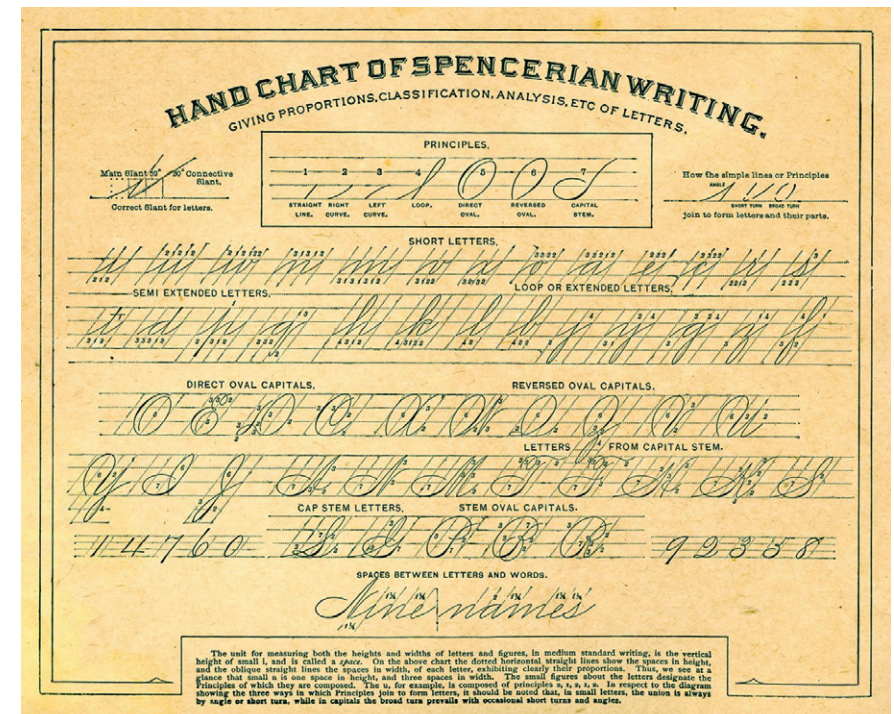 HAND CHART OF SPENCERIAN WRITING.
GIVING PROPORTIONS, CLASSIFICATION, ANALYSIS, ETC OF LETTERS.
PRINCIPLES.
1 2 3 4 5 6 7
STRAIGHT LINE. RIGHT CURVE. LEFT CURVE. LOOP. DIRECT OVAL. REVERSED OVAL. CAPITAL STEM.
Main Slant 52° 30° Connective Slant.
Correct Slant for letters.
How the simple lines or Principles
ANGLE
SHORT TURN BROAD TURN
join to form letters and their parts.
SHORT LETTERS.
i u w n m v x o a e c r s
SEMI EXTENDED LETTERS.
LOOP OR EXTENDED LETTERS.
t d p q h k l b j y g z f
DIRECT OVAL CAPITALS.
REVERSED OVAL CAPITALS.
O E D C X W Q Z V U
LETTERS FROM CAPITAL STEM.
Y I J A N M T F H K S
CAP STEM LETTERS.
STEM OVAL CAPITALS.
S L P B R
1 4 7 6 0
9 2 3 5 8
SPACES BETWEEN LETTERS AND WORDS.
Nine names
The unit for measuring both the heights and widths of letters and figures, in medium standard writing, is the vertical
height of small i, and is called a space. On the above chart the dotted horizontal straight lines show the spaces in height,
and the oblique straight lines the spaces in width, of each letter, exhibiting clearly their proportions. Thus, we see at a
glance that small n is one space in height, and three spaces in width. The small figures about the letters designate the
Principles of which they are composed. The u, for example, is composed of principles 2, 1, 2, 1, 2. In respect to the diagram
showing the three ways in which Principles join to form letters, it should be noted that, in small letters, the union is always
by angle or short turn, while in capitals the broad turn prevails with occasional short turns and angles.